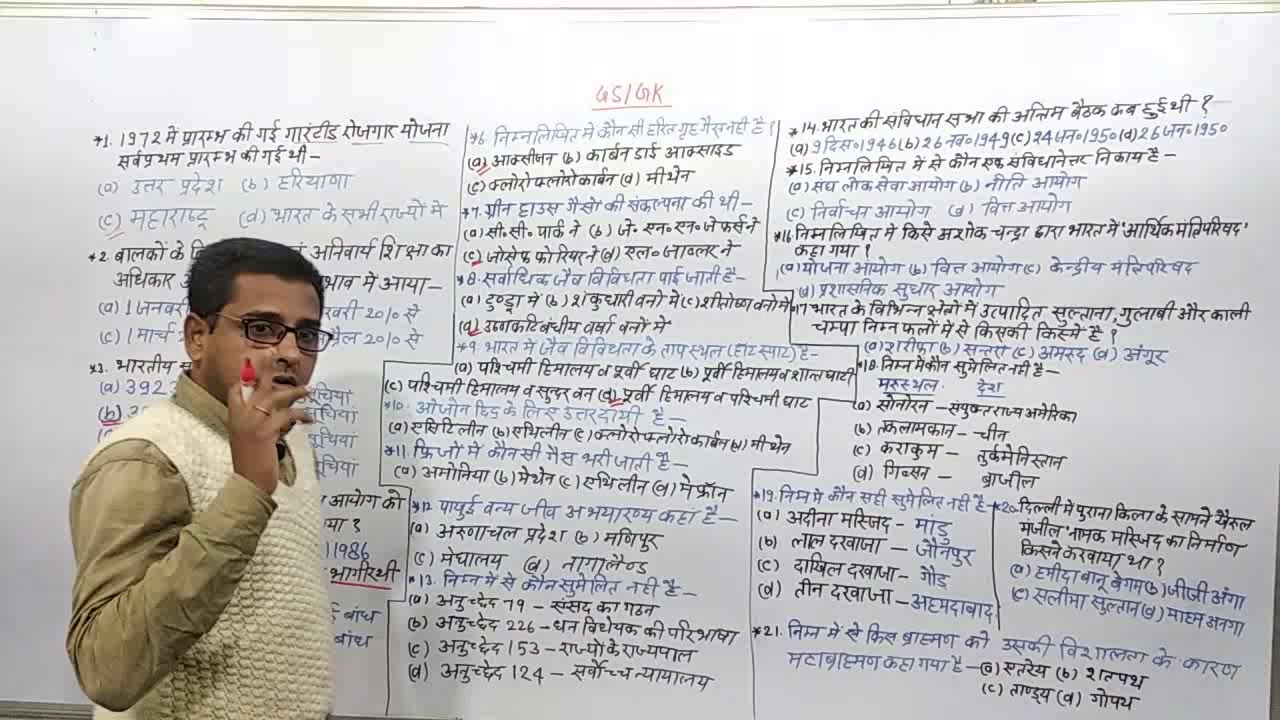 GS/GK
*1. 1972 में प्रारम्भ की गई गारंटीड रोजगार योजना
सर्वप्रथम प्रारम्भ की गई थी –
(a) उत्तर प्रदेश (b) हरियाणा
(c) महाराष्ट्र (d) भारत के सभी राज्यों में
*2. बालकों के अनिवार्य शिक्षा का
अधिकार भाव में आया –
(a) 1 जनवरी रवरी 2010 से
(c) 1 मार्च 2010 से
*3. भारतीय
(a) 392 चियां
(b) 3 चियां
चियां
चियां
आयोग को
या ?
1986
भागीरथी
बांध
बांध
*6. निम्नलिखित में कौन सी हरित गृह गैस नहीं है ?
(a) आक्सीजन (b) कार्बन डाई आक्साइड
(c) क्लोरो फ्लोरो कार्बन (d) मीथेन
*7. ग्रीन हाउस गैसों की संकल्पना की थी –
(a) सी. सी. पार्क ने (b) जे. एन. एन. जेफर्स ने
(c) जोसेफ फोरियर ने (d) एल. जाब्लर ने
*8. सर्वाधिक जैव विविधता पाई जाती है –
(a) टुण्ड्रा में (b) शंकुधारी वनों में (c) शीतोष्ण वनों में
(d) उष्णकटिबंधीय वर्षा वनों में
*9. भारत में जैव विविधता के ताप स्थल (हॉट स्पॉट) है –
(a) पश्चिमी हिमालय व पूर्वी घाट (b) पूर्वी हिमालय व शान्त घाटी
(c) पश्चिमी हिमालय व सुन्दर वन (d) पूर्वी हिमालय व पश्चिमी घाट
*10. ओजोन छिद्र के लिए उत्तरदायी है –
(a) एसिटिलीन (b) एथिलीन (c) क्लोरो फ्लोरो कार्बन (d) मीथेन
*11. फ्रिजों में कौन सी गैस भरी जाती है –
(a) अमोनिया (b) मेथेन (c) एथिलीन (d) मेफ्रॉन
*12. पापुई वन्य जीव अभयारण्य कहां है –
(a) अरुणाचल प्रदेश (b) मणिपुर
(c) मेघालय (d) नागालैण्ड
*13. निम्न में से कौन सुमेलित नहीं है –
(a) अनुच्छेद 79 – संसद का गठन
(b) अनुच्छेद 226 – धन विधेयक की परिभाषा
(c) अनुच्छेद 153 – राज्यों के राज्यपाल
(d) अनुच्छेद 124 – सर्वोच्च न्यायालय
*14. भारत की संविधान सभा की अन्तिम बैठक कब हुई थी ?
(a) 9 दिस॰ 1946 (b) 26 नव॰ 1949 (c) 24 जन॰ 1950 (d) 26 जन॰ 1950
*15. निम्नलिखित में से कौन एक संविधानेत्तर निकाय है –
(a) संघ लोक सेवा आयोग (b) नीति आयोग
(c) निर्वाचन आयोग (d) वित्त आयोग
*16. निम्नलिखित में किसे अशोक चन्द्रा द्वारा भारत में 'आर्थिक मंत्रिपरिषद'
कहा गया ?
(a) योजना आयोग (b) वित्त आयोग (c) केन्द्रीय मंत्रिपरिषद
(d) प्रशासनिक सुधार आयोग
*17 भारत के विभिन्न क्षेत्रों में उत्पादित सुल्ताना, गुलाबी और काली
चम्पा निम्न फलों में से किसकी किस्में है ?
(a) शरीफा (b) सन्तरा (c) अमरूद (d) अंगूर
*18. निम्न में कौन सुमेलित नहीं है –
मरुस्थल देश
(a) सोनोरन – संयुक्त राज्य अमेरिका
(b) तकलामकान – चीन
(c) काराकुम – तुर्कमेनिस्तान
(d) गिब्सन – ब्राजील
*19. निम्न में कौन सही सुमेलित नहीं है –
(a) अदीना मस्जिद – मांडु
(b) लाल दरवाजा – जौनपुर
(c) दाखिल दरवाजा – गौड़
(d) तीन दरवाजा – अहमदाबाद
*20. दिल्ली में पुराना किला के सामने खैरुल
मंजील नामक मस्जिद का निर्माण
किसने करवाया था ?
(a) हमीदा बानू बेगम (b) जीजी अंगा
(c) सलीमा सुल्तान (d) माहम अनगा
*21. निम्न में से किस ब्राह्मण को उसकी विशालता के कारण
महाब्राह्मण कहा गया है – (a) एतरेय (b) शतपथ
(c) ताण्ड्य (d) गोपथ